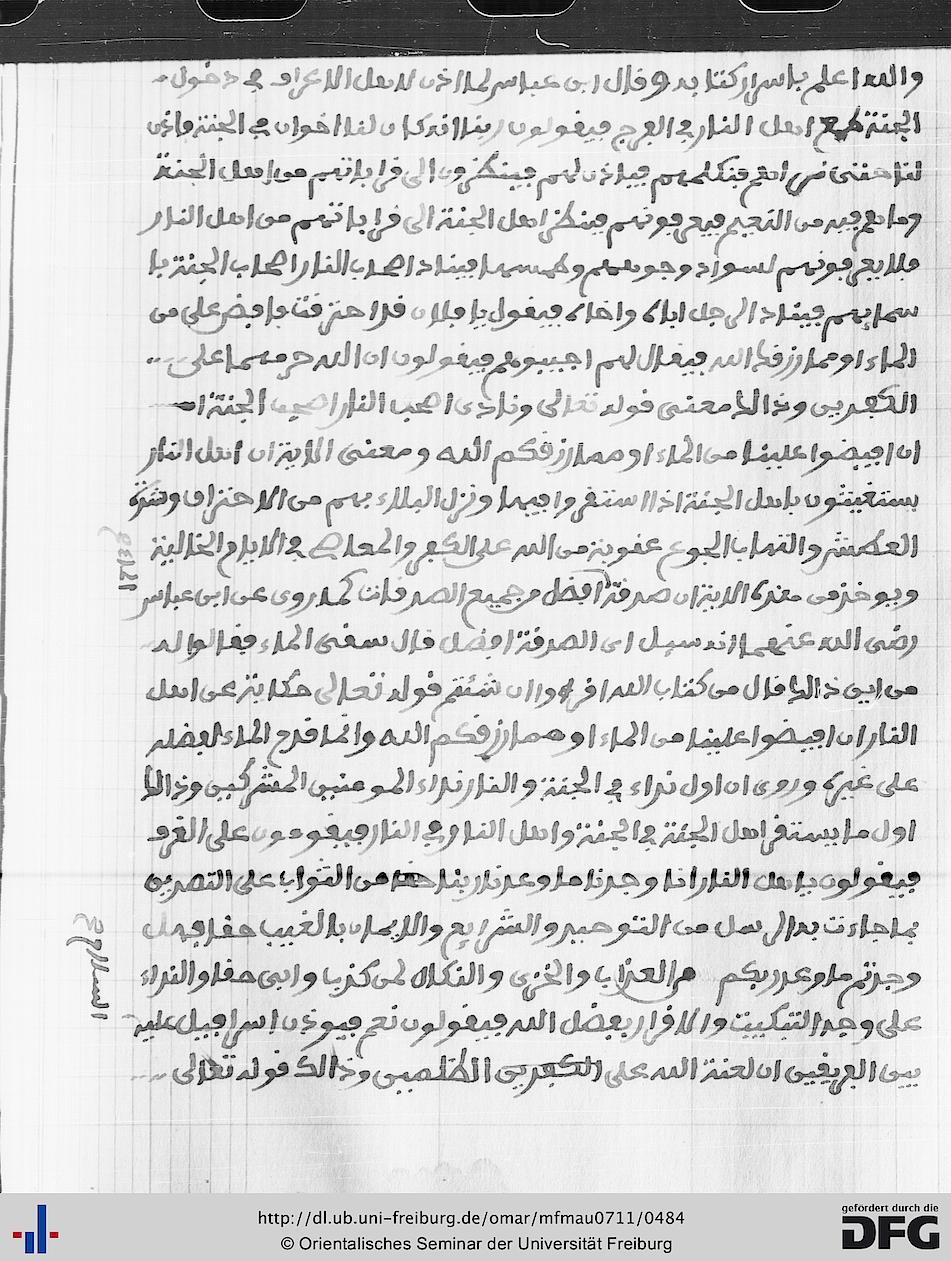 والله اعلم باسرار كتابه و قال ابن عباس لما اذن لاهل الاعراف في دخول
الجنة طمع اهل النار في الفرج فيقولون ربنا انه كان لنا اخوان في الجنة فاذن
لنا حتى نراهم فنكلمهم فياذن لهم فينظرون الى قراباتهم من اهل الجنة
وما هم فيه من النعيم فيعرفونهم فينظر اهل الجنة الى قراباتهم من اهل النار
فلا يعرفونهم لسواد وجوههم وطمسها فيناد اصحاب النار اصحاب الجنة با
سمايهم فيناد الرجل اباه واخاه فيقول يا فلان قد احترقت فافيض علي من
الماء او مما رزقك الله فيقال لهم اجيبوهم فيقولون ان الله حرمهما على
الكفرين وذالك معنى قوله تعالى ونادى اصحب النار اصحب الجنة ا
ان افيضوا علينا من الماء او مما رزقكم الله ومعنى الاية ان اهل النار
يستغيثون باهل الجنة اذا استقروا فيها ونزل البلاء بهم من الاحتراق وشدة
العطش والتهاب الجوع عقوبة من الله على الكفر والمعاصي في الايام الخالية
ويوخذ من هذه الاية ان صدقة افضل من جميع الصدقات كما روي عن ابن عباس
رضى الله عنهما انه سيل اى الصدقة افضل قال سقى الماء فقالوا له
من اين ذالك قال من كتاب الله اقرءوا ان شئتم قوله تعالى حكاية عن اهل
النار ان افيضوا علينا من الماء او مما رزقكم الله وانما قدم الماء لفضله
على غيره وروى ان اول نداء في الجنة والنار نداء المومنين المشركين وذالك
اول ما يستقر اهل الجنة في الجنة واهل النار في النار فيقومون على الغرف
فيقولون يا اهل النار انا وجدنا ما وعدنا ربنا حقا من الثواب على التصديق
بما جاءت به الرسل من التوحيد والشرايع والايمان بالغيب حقا فهل
وجدتم ما وعد ربكم من العذاب والخزى والنكال لمن كذب وابى حقا والنداء
على وجه التبكيت والاقرار بفضل الله فيقولون نعم فيوذن اسرافيل عليه
السلام
بين الفريقين ان لعنة الله على الكفرين الظلمين وذالك قوله تعالى